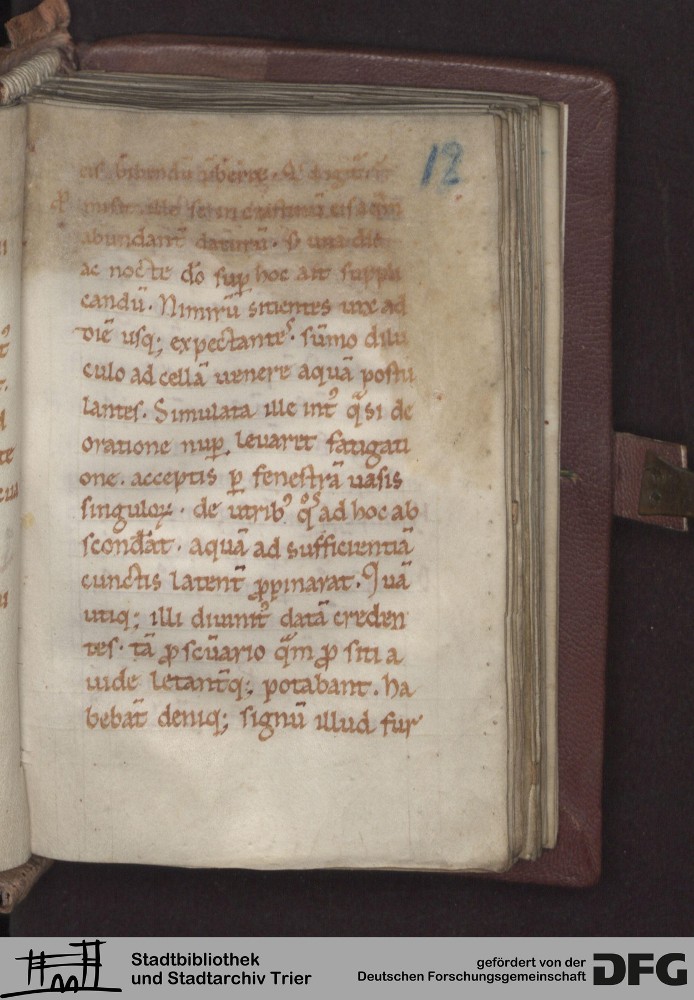 12
eis bibendū
misit ille se
abundant̄ daturū. s; una die
ac nocte dō suꝑ hoc ait suppli
candū. Nimirū sitientes uix ad
diē usq; expectantes. sūmo dilu
culo ad cellā uenere aquā postu
lantes. Simulata ille int̾ q̄si de
oratione nuꝑ leuaret fatigati
one. acceptis ꝑ fenestrā uasis
singuloꝝ. de utribꝰ qͦs ad hoc ab
scond̾at. aquā ad sufficientiā
cunctis latent̄ ꝓpinarat. Quā
utiq; illi diuinitꝰ datā creden
tes. tā ꝓ scūario q̄m ꝓ siti a
uide letant̄q; potabant. ha
bebat̄ deniq; signū illud fur
Stadtbibliothek
und Stadtarchiv Trier
gefördert von der
Deutschen Forschungsgemeinschaft
DFG